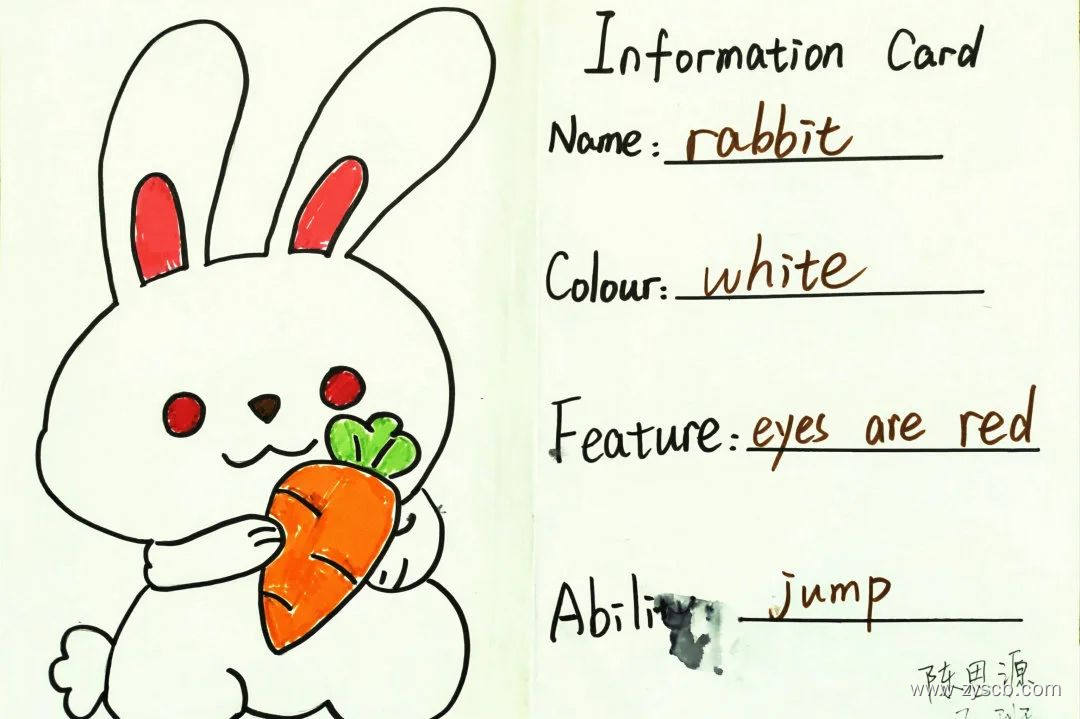 Information Card
Name: rabbit
Colour: white
Feature: eyes are red
jump
陈思源
www.zyscb.com